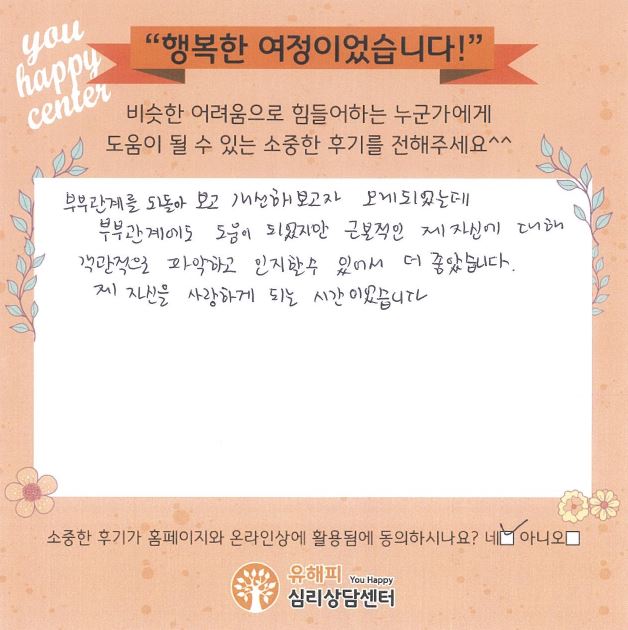 you
happy
center
“행복한 여정이었습니다!”
비슷한 어려움으로 힘들어하는 누군가에게
도움이 될 수 있는 소중한 후기를 전해주세요^^
부부관계를 되돌아 보고 개선해보고자 오게되었는데
부부관계에도 도움이 되었지만 근본적인 제 자신에 대해
객관적으로 파악하고 인지할수 있어서 더 좋았습니다.
제 자신을 사랑하게 되는 시간이었습니다
소중한 후기가 홈페이지와 온라인상에 활용됨에 동의하시나요? 네☑ 아니오☐
유해피 You Happy
심리상담센터